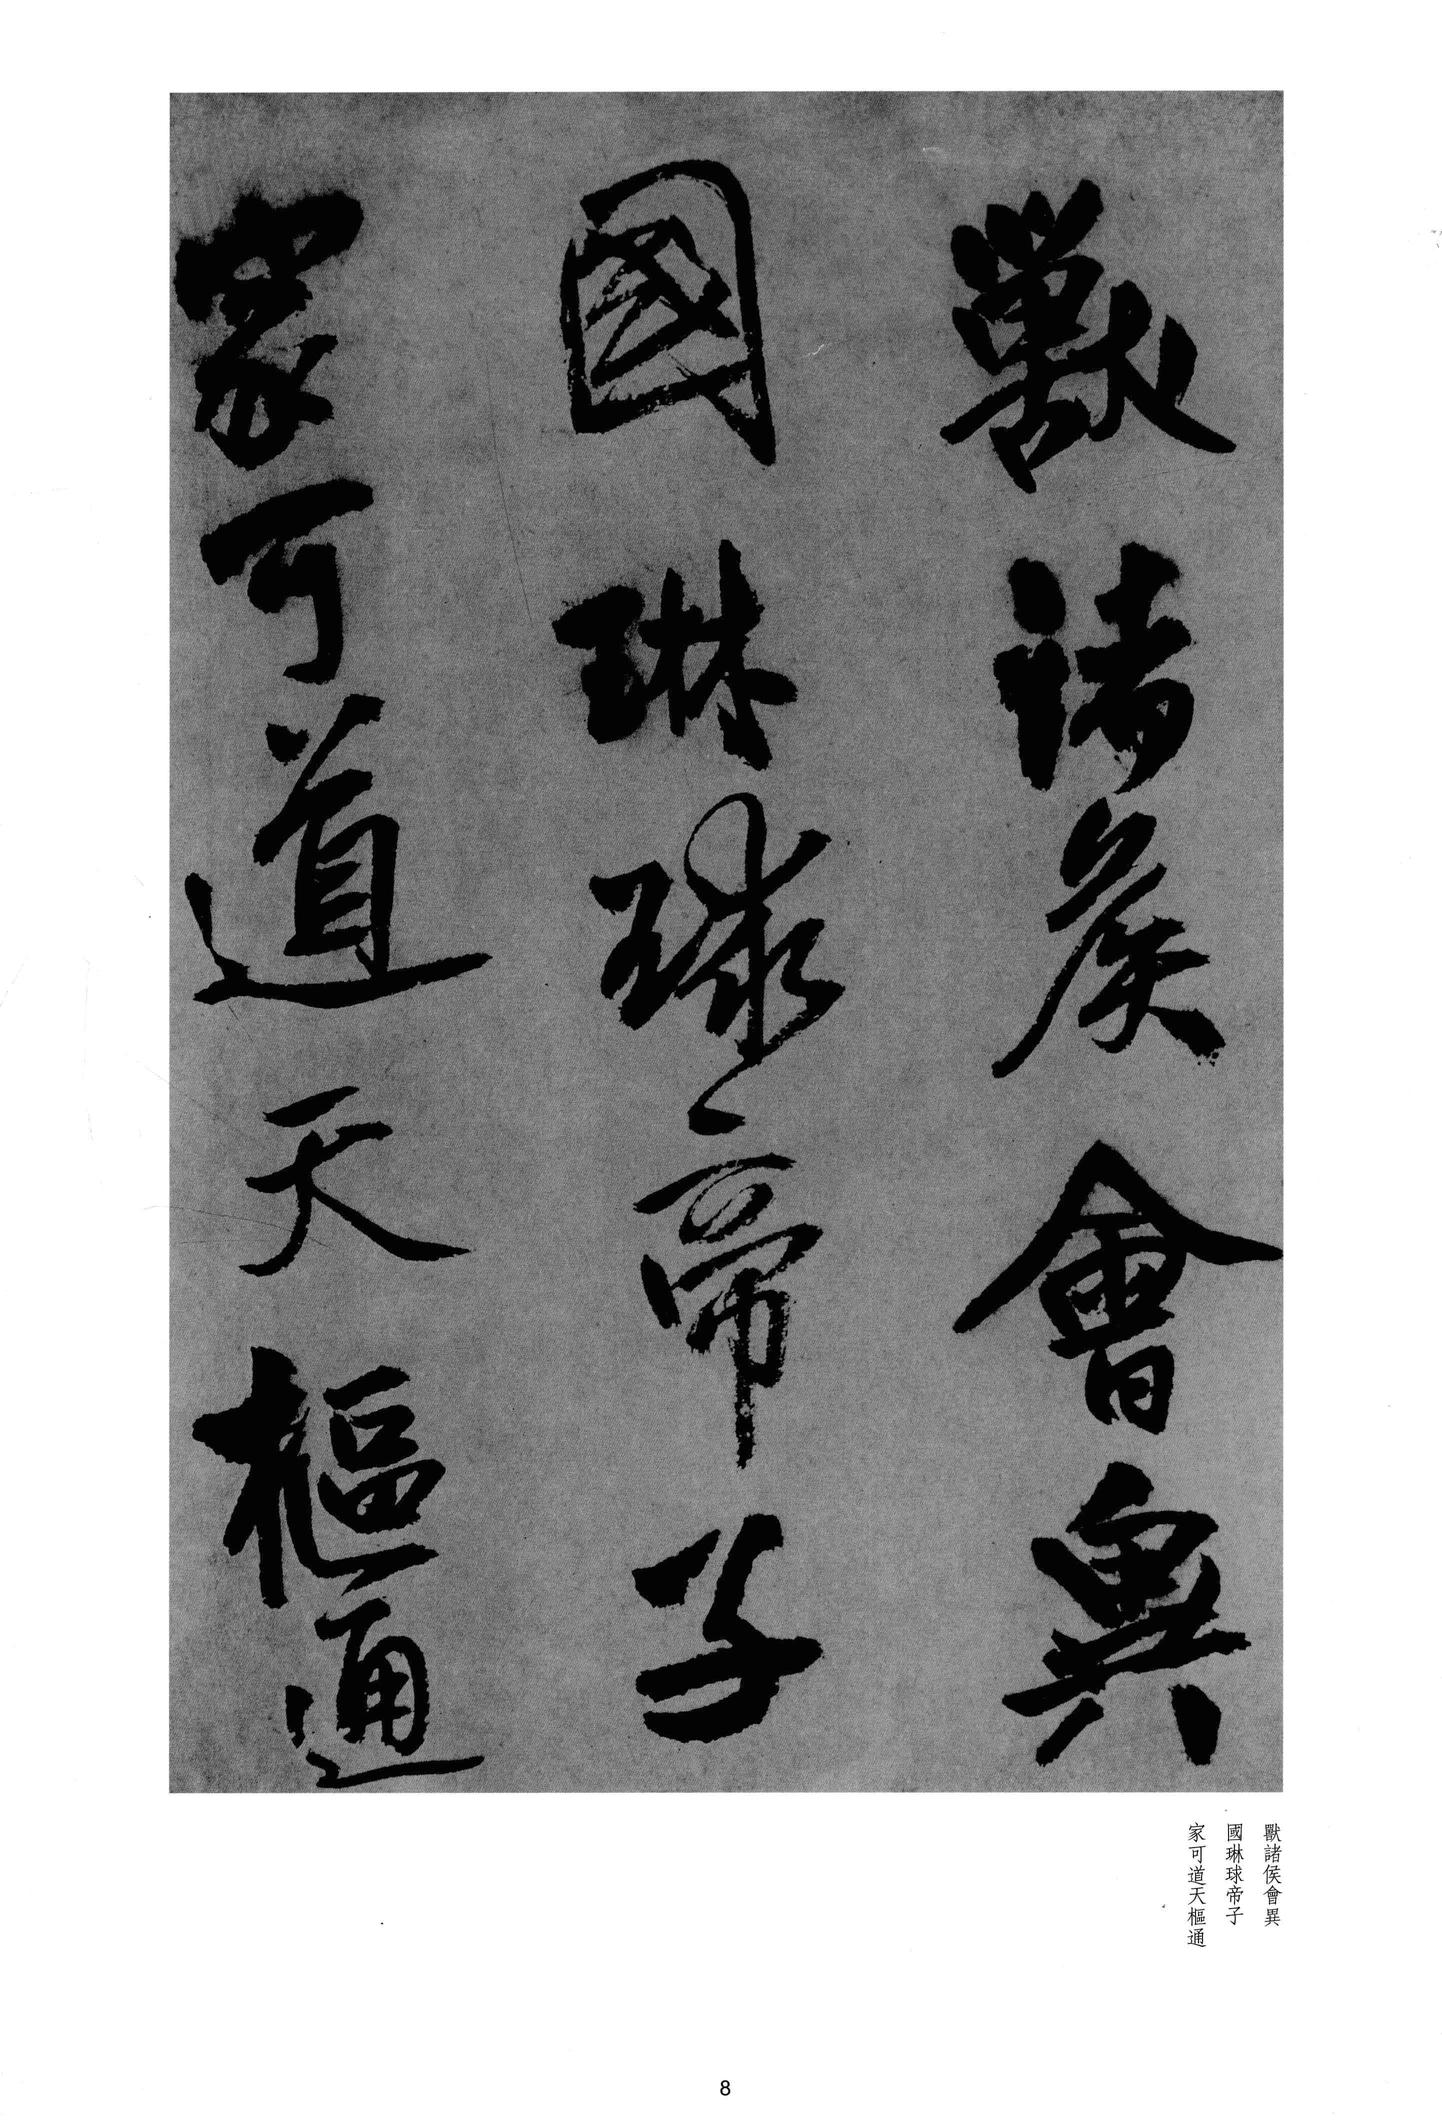 獸諸侯會異
國琳球帝子
家可道天樞通
獸諸侯會異
國琳球帝子
家可道天樞通
8